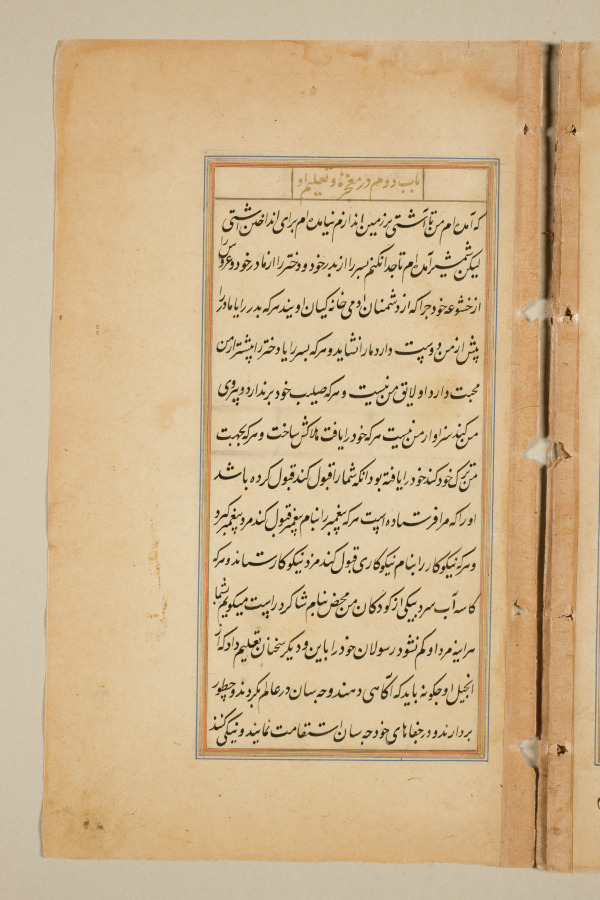 باب دوم در معجزها و تعلیم او
که آمده‌ام من تا آشتی بر زمین اندازم نیامده‌ام برای انداختن آشتی
لیکن شمشیر آمده‌ام تا جدا نکنم پسر را از پدر خود و دختر را از مادر خود و عروس را
از خشوعه خود چرا که از دشمنان ادمی خانه کیان اویند هرکه پدر را یا مادر را
پیش از من دوست دارد مارا نشاید و هرکه پسر را یا دختر را بیشتر از من
محبت دارد او لایق من نیست و هرکه صلیب خود برندارد و پیروی
من کند سزاوار من نیست هرکه خود را یافت هلاکش ساخت و هرکه بجهت
من ترک خود کند خود را یافته بود آنکه شما را قبول کند قبول کرده باشد
او را که مرا فرستاده است هرکه پیغمبر را بنام پیغمبر قبول کند مزد پیغمبر گیرد
و هرکه نیکوکار را بنام نیکوکاری قبول کند مزد نیکوکار ستاند و هرکه
کاسه آب سرد بیکی از کودکان من محض بنام شاکرد راست میکویم شما
هراینه مزد او کم نشود رسولان خود را باین و دیگر سخنان تعلیم داد که از
انجیل او چگونه باید که آگاهی دهند و چه سان در عالم بگردند و چطور
بردارند و در جفاهای خود چه سان استقامت نمایند و نیکی کنند